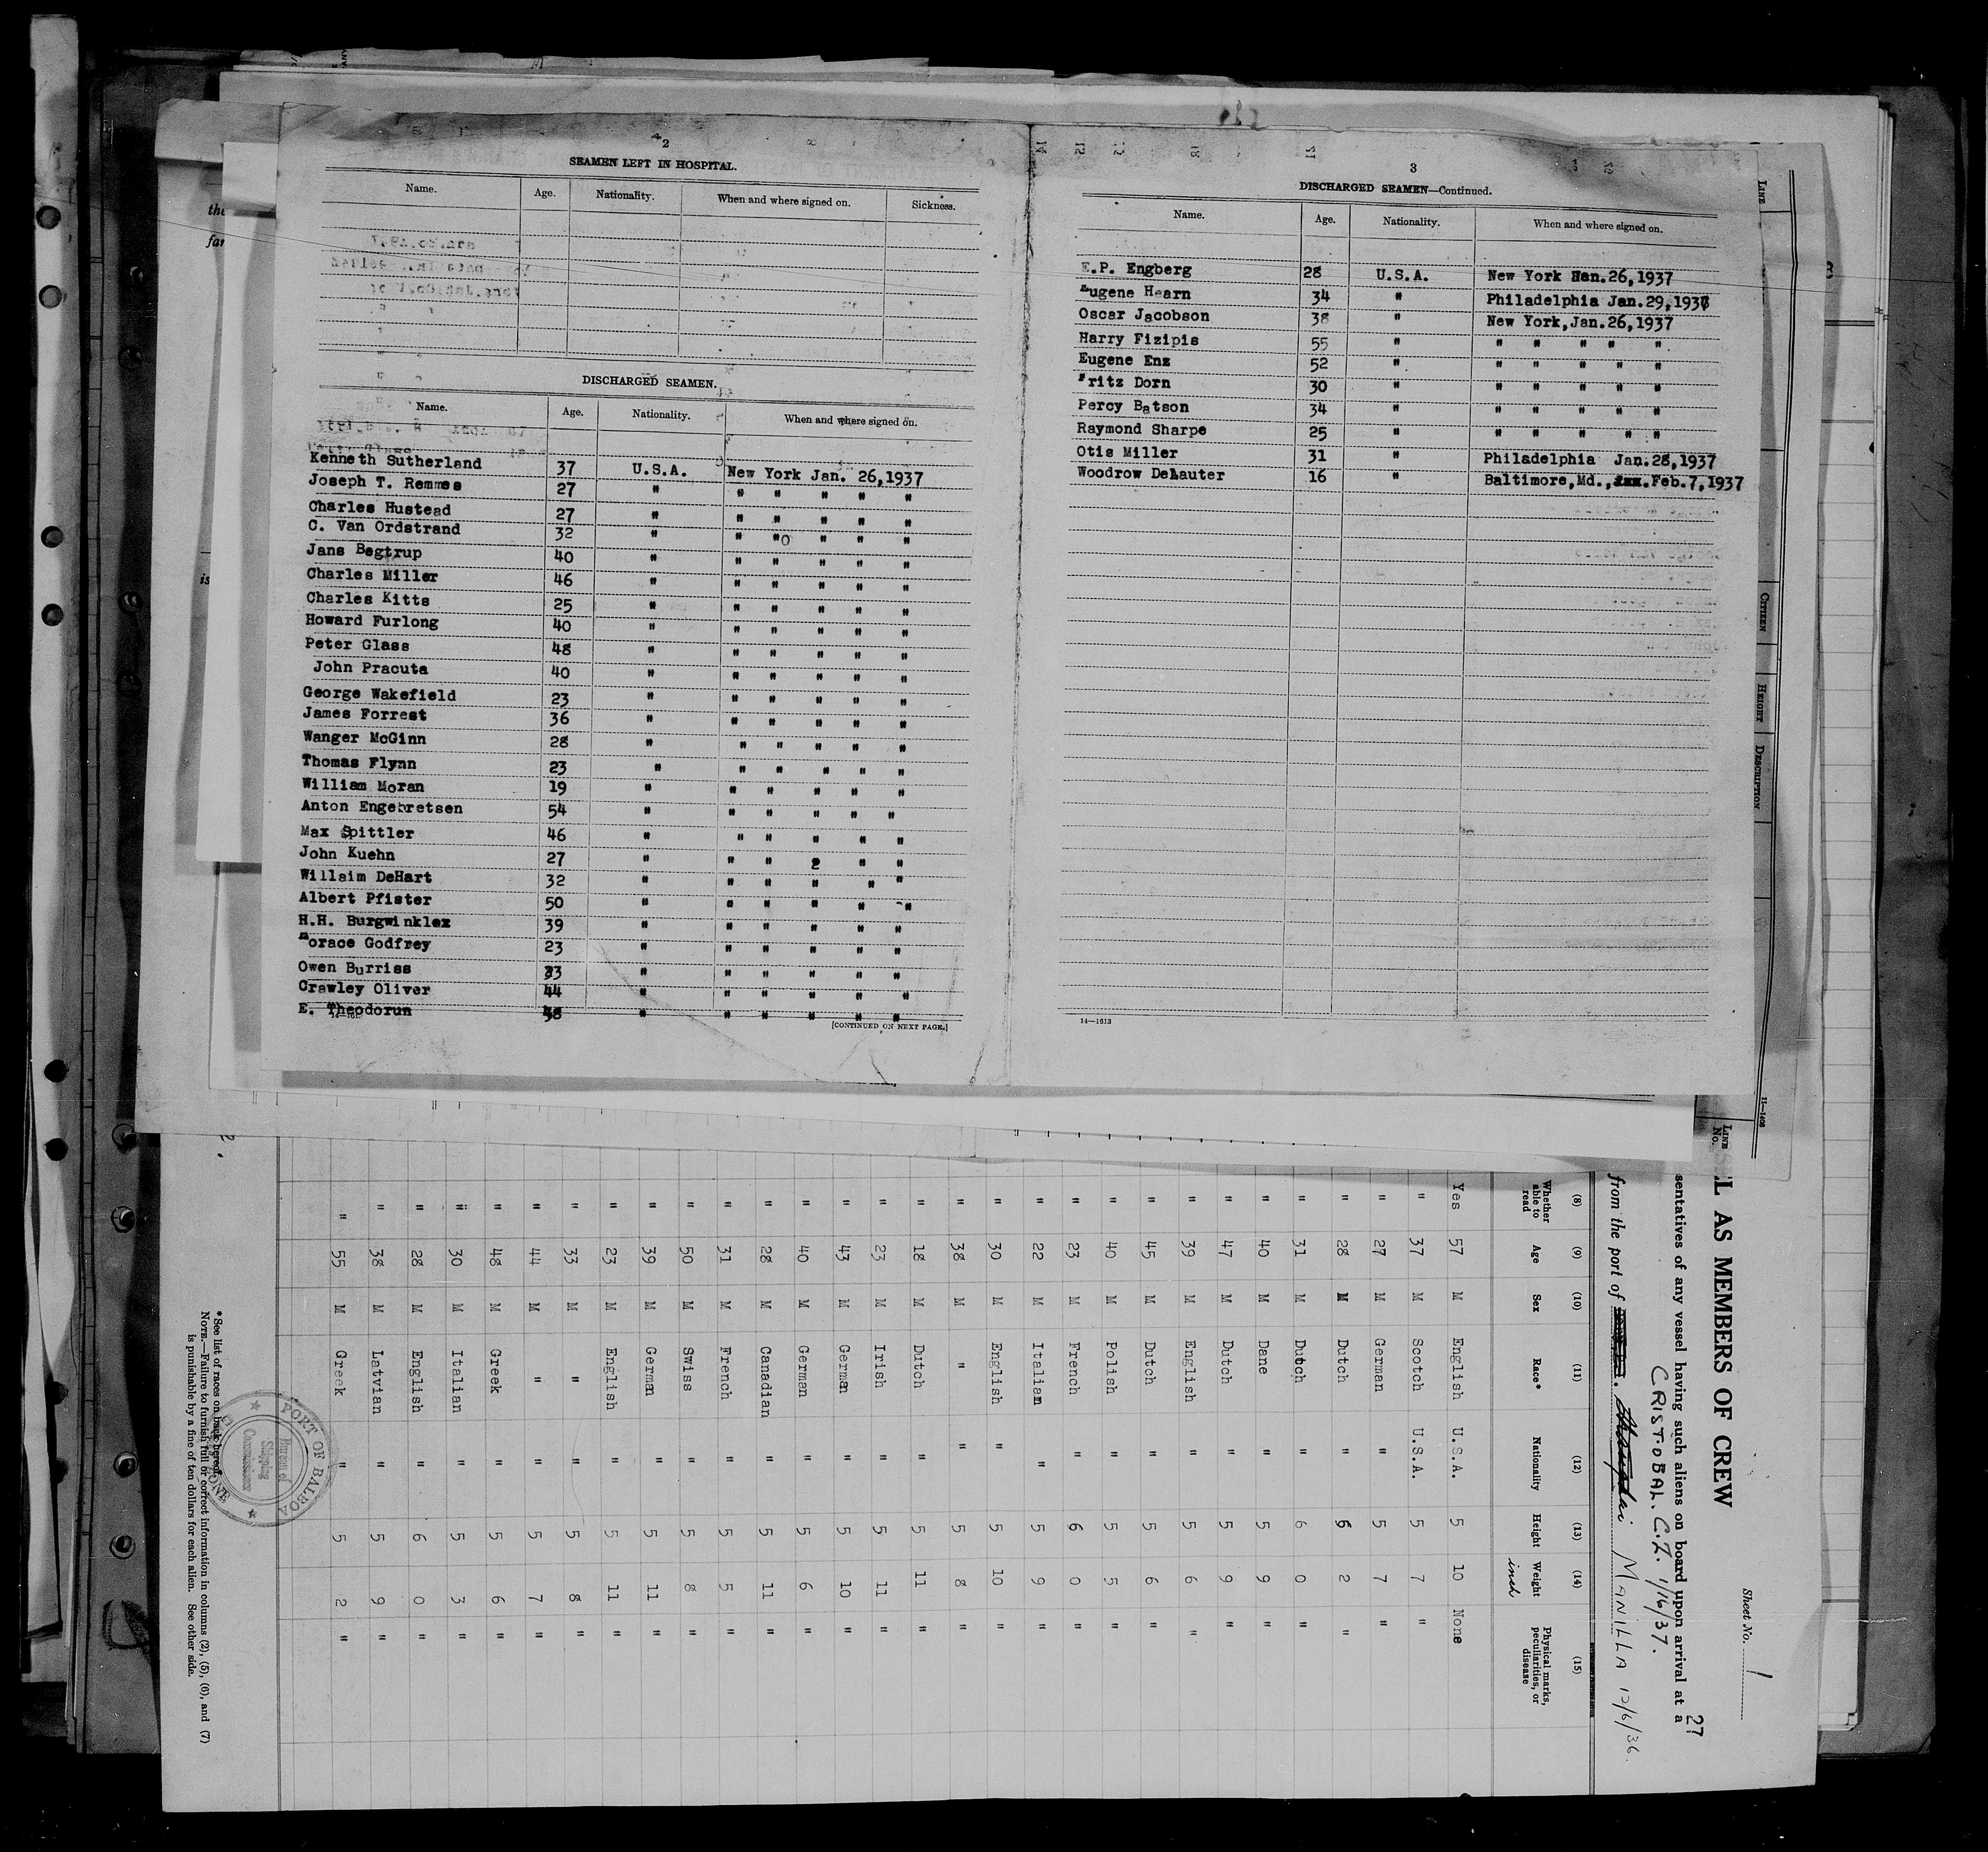 2
SEAMEN LEFT IN HOSPITAL.
Name. Age. Nationality. When and where signed on. Sickness.
DISCHARGED SEAMEN.
Name. Age. Nationality. When and where signed on.
Kenneth Sutherland 37 U.S.A. New York Jan. 26,1937
Joseph T. Remmes 27 " " " " " "
Charles Hustead 27 " " " " " "
C. Van Ordstrand 32 " " "o " " "
Jans Begtrup 40 " " " " " "
Charles Miller 46 " " " " " "
Charles Kitts 25 " " " " " "
Howard Furlong 40 " " " " " "
Peter Glass 48 " " " " " "
John Pracuta 40 " " " " " "
George Wakefield 23 " " " " " "
James Forrest 36 " " " " " "
Wanger McGinn 28 " " " " " "
Thomas Flynn 23 " " " " " "
William Moran 19 " " " " " "
Anton Engebretsen 54 " " " " " "
Max Spittler 46 " " " " " "
John Kuehn 27 " " " 2 " "
Willaim DeHart 32 " " " " " "
Albert Pfister 50 " " " " " "
H.H. Burgwinklex 39 " " " " " "
Horace Godfrey 23 " " " " " "
Owen Burriss 33 " " " " " "
Crawley Oliver 44 " " " " " "
E. Theodorun 38 " " " " " "
[CONTINUED ON NEXT PAGE.]
3
DISCHARGED SEAMEN—Continued.
Name. Age. Nationality. When and where signed on.
E.P. Engberg 28 U.S.A. New York Han.26,1937
Eugene Hearn 34 " Philadelphia Jan.29,1937
Oscar Jacobson 38 " New York,Jan.26,1937
Harry Fizipis 55 " " " " " "
Eugene Enz 52 " " " " " "
Fritz Dorn 30 " " " " " "
Percy Batson 34 " " " " " "
Raymond Sharpe 25 " " " " " "
Otis Miller 31 " Philadelphia Jan.28,1937
Woodrow DeLauter 16 " Baltimore,Md., Feb.7,1937
14—1613
LINE
CITIZEN
HEIGHT
DESCRIPTION
11—1408
LINE No.
the
far
is
Sheet No. 1
27
L AS MEMBERS OF CREW
sentatives of any vessel having such aliens on board upon arrival at a
CRISTOBAL. C.Z. 1/16/37.
from the port of MANILLA 12/6/36.
(8) (9) (10) (11) (12) (13) (14) (15)
Whether able to read Age Sex Race* Nationality Height Weight Physical marks, peculiarities, or disease
inch
Yes 57 M English U.S.A. 5 10 None
" 37 M Scotch U.S.A. 5 7 "
" 27 M German " 5 7 "
" 28 M Dutch " 6 2 "
" 31 M Dutch " 6 0 "
" 40 M Dane " 5 9 "
" 47 M Dutch " 5 9 "
" 39 M English " 5 6 "
" 45 M Dutch " 5 6 "
" 40 M Polish " 5 5 "
" 23 M French " 6 0 "
" 22 M Italian " 5 9 "
" 30 M English " 5 10 "
" 38 M " " 5 8 "
" 18 M Dutch " 5 11 "
" 23 M Irish " 5 11 "
" 43 M German " 5 10 "
" 40 M German " 5 6 "
" 28 M Canadian " 5 11 "
" 31 M French " 5 5 "
" 50 M Swiss " 5 8 "
" 39 M German " 5 11 "
" 23 M English " 5 11 "
" 33 M " " 5 8 "
" 44 M " " 5 7 "
" 48 M Greek " 5 6 "
" 30 M Italian " 5 3 "
" 28 M English " 6 0 "
" 38 M Latvian " 5 9 "
" 55 M Greek " 5 2 "
*See list of races on back hereof.
NOTE.—Failure to furnish full or correct information in columns (2), (5), (6), and (7)
is punishable by a fine of ten dollars for each alien. See other side.
PORT OF BALBOA
Bureau of
Shipping
Commissioner
ZONE